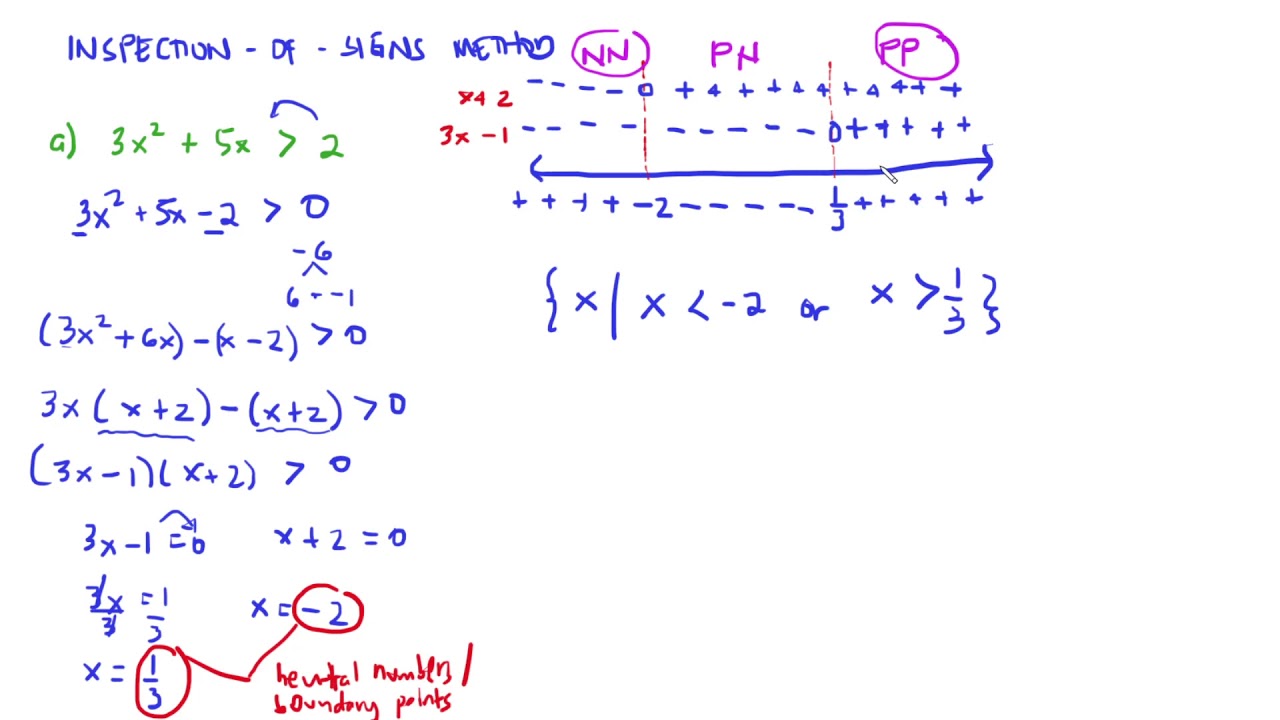 INSPECTION - OF - SIGNS METHOD
a) 3x² + 5x > 2
3x² + 5x - 2 > 0
-6
6 - -1
(3x² + 6x) - (x - 2) > 0
3x (x + 2) - (x + 2) > 0
(3x - 1)(x + 2) > 0
3x - 1 = 0 x + 2 = 0
3x/3 = 1/3 x = -2
x = 1/3
neutral numbers /
boundary points
NN PN PP
x+2 - - - - 0 + + + + + + + + + + +
3x - 1 - - - - - - - - - - 0 + + + + +
+ + + + -2 - - - - - 1/3 + + + + +
{ x | x < -2 or x > 1/3 }